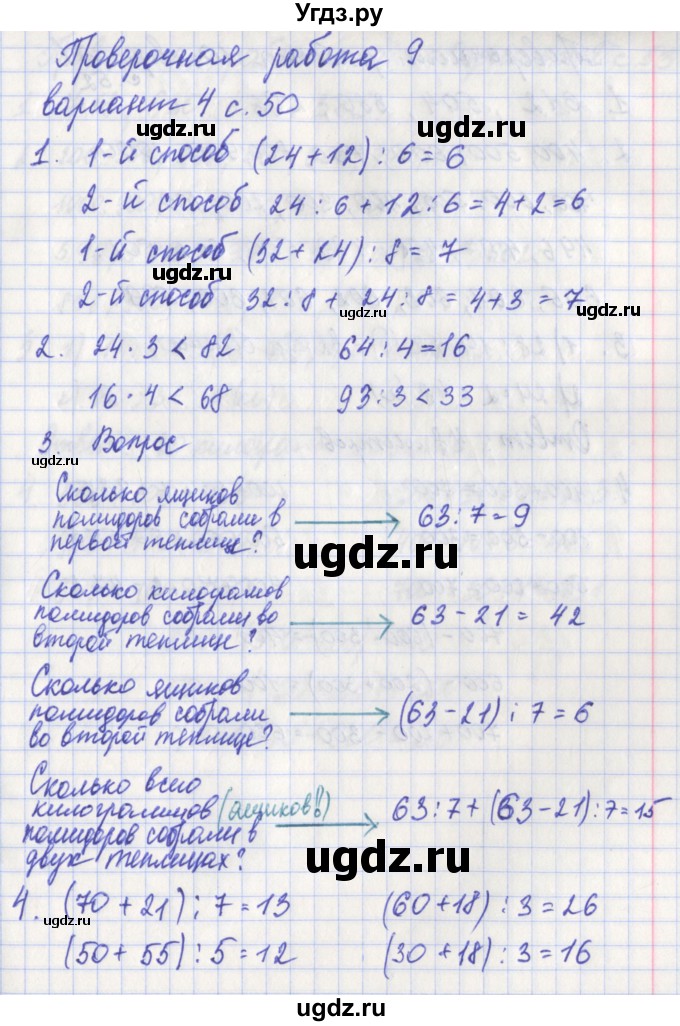 Угдз.ру
Проверочная работа 9
вариант 4 с. 50
ugdz.ru
1. 1-й способ (24+12) : 6 = 6
2-й способ 24 : 6 + 12 : 6 = 4+2 = 6
1-й способ (32+24) : 8 = 7
ugdz.ru
2-й способ 32 : 8 + 24 : 8 = 4+3 = 7
ugdz.ru
2. 24 · 3 < 82 64 : 4 = 16
16 · 4 < 68 93 : 3 < 33
3. Вопрос
ugdz.ru
Сколько ящиков
помидоров собрали в → 63 : 7 = 9
первой теплице?
ugdz.ru
Сколько килограмов
помидоров собрали во → 63 - 21 = 42
второй теплице?
Сколько ящиков
помидоров собрали → (63-21) : 7 = 6
во второй теплице?
Сколько всего
килограммов (ящиков!) → 63 : 7 + (63-21) : 7 = 15
помидоров собрали в
двух теплицах?
ugdz.ru
4. (70 + 21) : 7 = 13 (60+18) : 3 = 26
ugdz.ru
(50 + 55) : 5 = 12 (30 +18) : 3 = 16
ugdz.ru
ugdz.ru